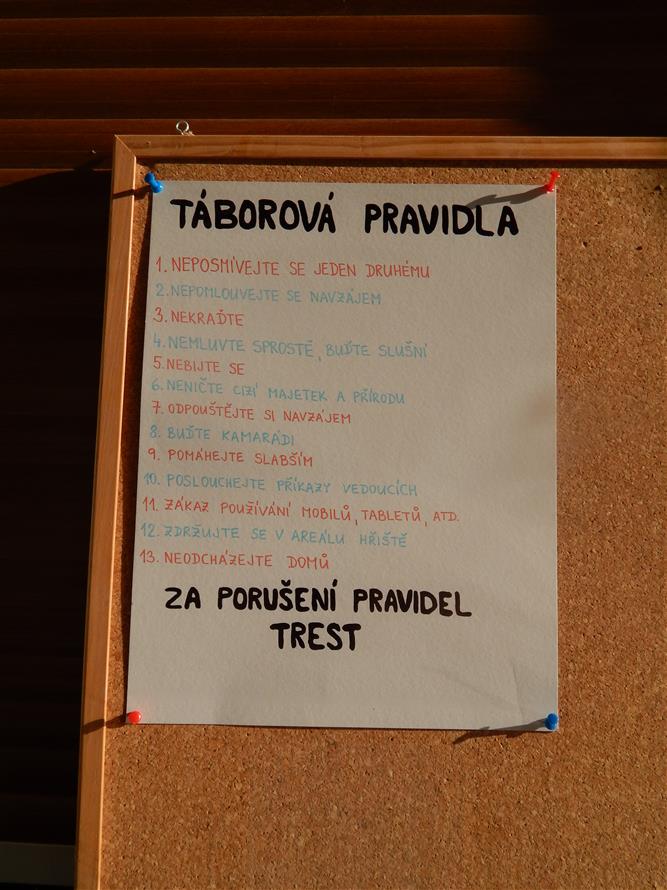 TÁBOROVÁ PRAVIDLA
1. NEPOSMÍVEJTE SE JEDEN DRUHÉMU
2. NEPOMLOUVEJTE SE NAVZÁJEM
3. NEKRAĎTE
4. NEMLUVTE SPROSTĚ, BUĎTE SLUŠNÍ
5. NEBIJTE SE
6. NENIČTE CIZÍ MAJETEK A PŘÍRODU
7. ODPOUŠTĚJTE SI NAVZÁJEM
8. BUĎTE KAMARÁDI
9. POMÁHEJTE SLABŠÍM
10. POSLOUCHEJTE PŘÍKAZY VEDOUCÍCH
11. ZÁKAZ POUŽÍVÁNÍ MOBILŮ, TABLETŮ, ATD.
12. ZDRŽUJTE SE V AREÁLU HŘIŠTĚ
13. NEODCHÁZEJTE DOMŮ
ZA PORUŠENÍ PRAVIDEL
TREST